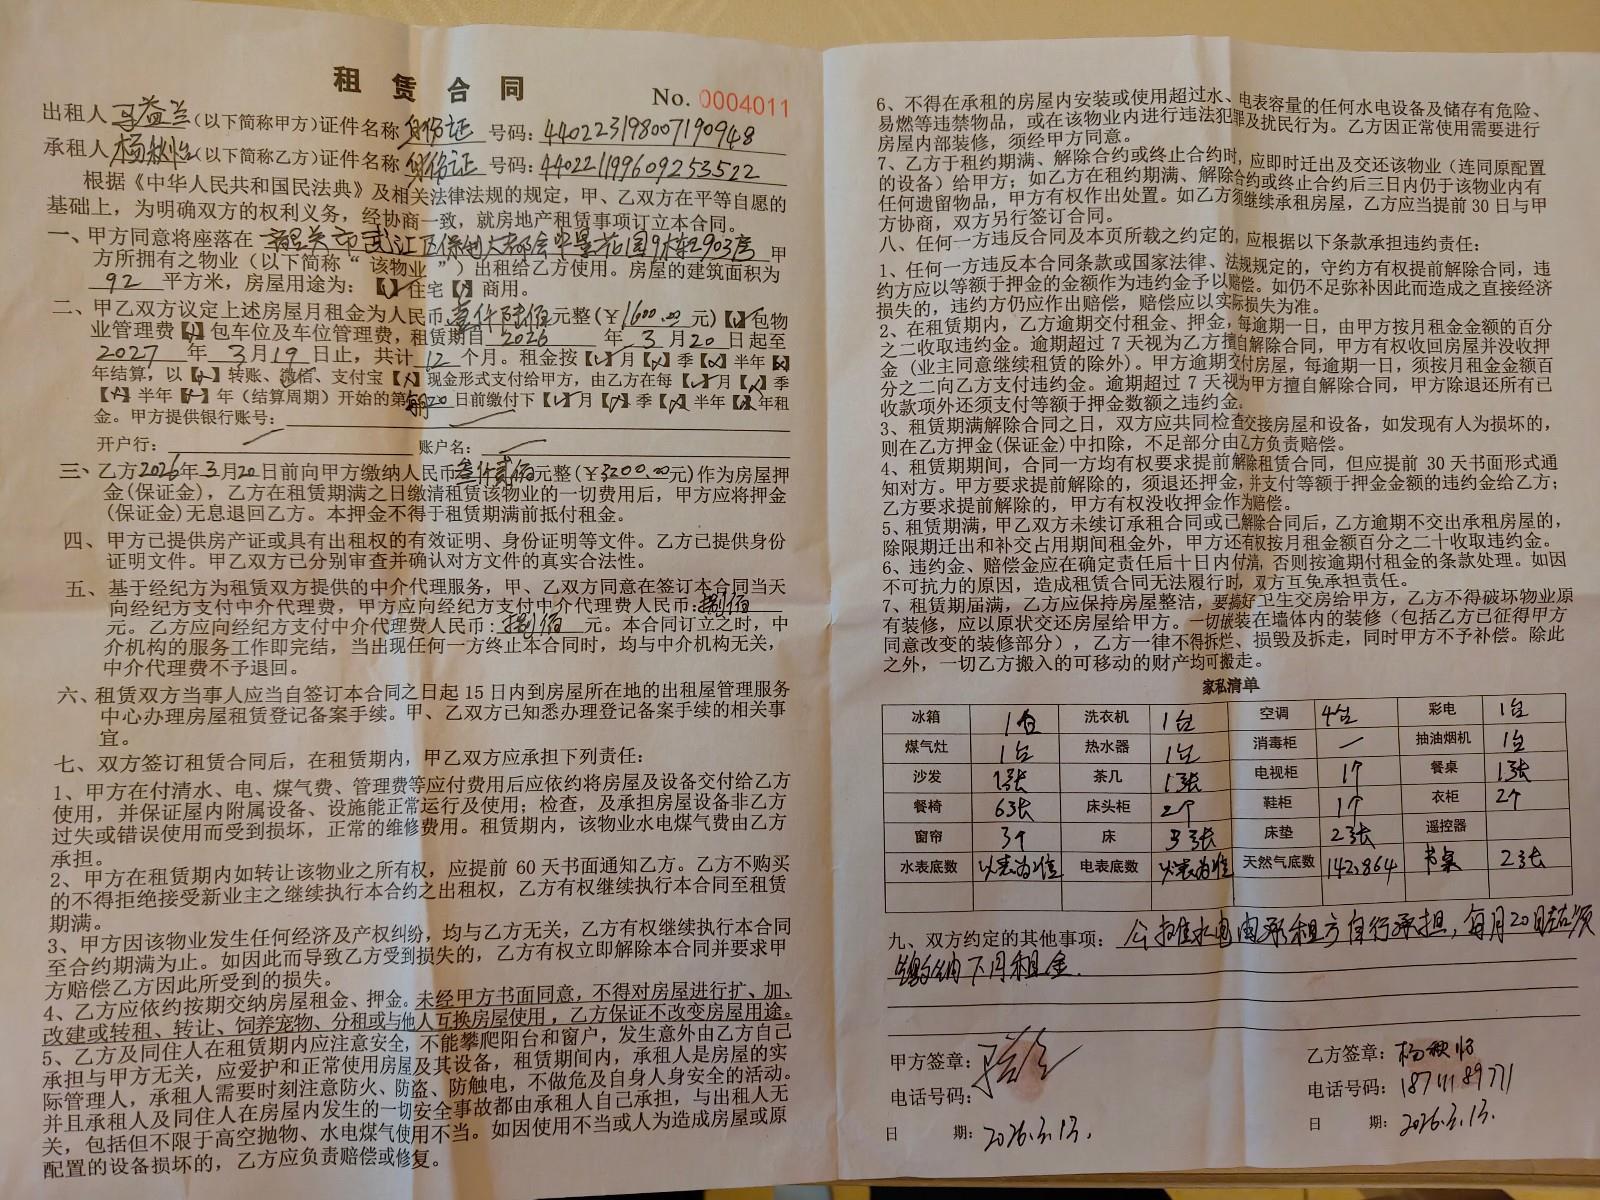 租 赁 合 同
No. 0004011
出租人 马益兰 (以下简称甲方)证件名称 身份证 号码: 440223198007190948
承租人 杨秋怡 (以下简称乙方)证件名称 身份证 号码: 440221199609253522
根据《中华人民共和国民法典》及相关法律法规的规定，甲、乙双方在平等自愿的
基础上，为明确双方的权利义务，经协商一致，就房地产租赁事项订立本合同。
一、甲方同意将座落在 韶关市武江区保利大都会中景花园9栋2903房 甲
方所拥有之物业（以下简称“ 该物业 ”）出租给乙方使用。房屋的建筑面积为
92 平方米，房屋用途为：【✓】住宅【\】商用。
二、甲乙双方议定上述房屋月租金为人民币 壹仟陆佰 元整(￥1600.00 元)【\】包物
业管理费【\】包车位及车位管理费，租赁期自 2026 年 3 月 20 日起至
2027 年 3 月 19 日止，共计 12 个月。租金按【✓】月【\】季【\】半年【\】
年结算，以【✓】转账、微信、支付宝【\】现金形式支付给甲方，由乙方在每【✓】月【\】季
【\】半年【\】年（结算周期）开始的第 每月20 日前缴付下【✓】月【\】季【\】半年【\】年租
金。甲方提供银行账号：
开户行： 账户名：
三、乙方 2026 年 3 月 20 日前向甲方缴纳人民币 叁仟贰佰 元整(￥3200.00 元)作为房屋押
金(保证金)，乙方在租赁期满之日缴清租赁该物业的一切费用后，甲方应将押金
(保证金)无息退回乙方。本押金不得于租赁期满前抵付租金。
四、甲方已提供房产证或具有出租权的有效证明、身份证明等文件。乙方已提供身份
证明文件。甲乙双方已分别审查并确认对方文件的真实合法性。
五、基于经纪方为租赁双方提供的中介代理服务，甲、乙双方同意在签订本合同当天
向经纪方支付中介代理费，甲方应向经纪方支付中介代理费人民币: 捌佰
元。乙方应向经纪方支付中介代理费人民币: 捌佰 元。本合同订立之时，中
介机构的服务工作即完结，当出现任何一方终止本合同时，均与中介机构无关，
中介代理费不予退回。
六、租赁双方当事人应当自签订本合同之日起 15 日内到房屋所在地的出租屋管理服务
中心办理房屋租赁登记备案手续。甲、乙双方已知悉办理登记备案手续的相关事
宜。
七、双方签订租赁合同后，在租赁期内，甲乙双方应承担下列责任：
1、甲方在付清水、电、煤气费、管理费等应付费用后应依约将房屋及设备交付给乙方
使用，并保证屋内附属设备、设施能正常运行及使用；检查，及承担房屋设备非乙方
过失或错误使用而受到损坏，正常的维修费用。租赁期内，该物业水电煤气费由乙方
承担。
2、甲方在租赁期内如转让该物业之所有权，应提前 60 天书面通知乙方。乙方不购买
的不得拒绝接受新业主之继续执行本合约之出租权，乙方有权继续执行本合同至租赁
期满。
3、甲方因该物业发生任何经济及产权纠纷，均与乙方无关，乙方有权继续执行本合同
至合约期满为止。如因此而导致乙方受到损失的，乙方有权立即解除本合同并要求甲
方赔偿乙方因此所受到的损失。
4、乙方应依约按期交纳房屋租金、押金。未经甲方书面同意，不得对房屋进行扩、加、
改建或转租、转让、饲养宠物、分租或与他人互换房屋使用，乙方保证不改变房屋用途。
5、乙方及同住人在租赁期内应注意安全，不能攀爬阳台和窗户，发生意外由乙方自己
承担与甲方无关，应爱护和正常使用房屋及其设备，租赁期间内，承租人是房屋的实
际管理人，承租人需要时刻注意防火、防盗、防触电，不做危及自身人身安全的活动。
并且承租人及同住人在房屋内发生的一切安全事故都由承租人自己承担，与出租人无
关，包括但不限于高空抛物、水电煤气使用不当。如因使用不当或人为造成房屋或原
配置的设备损坏的，乙方应负责赔偿或修复。
6、不得在承租的房屋内安装或使用超过水、电表容量的任何水电设备及储存有危险、
易燃等违禁物品，或在该物业内进行违法犯罪及扰民行为。乙方因正常使用需要进行
房屋内部装修，须经甲方同意。
7、乙方于租约期满、解除合约或终止合约时，应即时迁出及交还该物业（连同原配置
的设备）给甲方；如乙方在租约期满、解除合约或终止合约后三日内仍于该物业内有
任何遗留物品，甲方有权作出处置。如乙方须继续承租房屋，乙方应当提前 30 日与甲
方协商，双方另行签订合同。
八、任何一方违反合同及本页所载之约定的，应根据以下条款承担违约责任：
1、任何一方违反本合同条款或国家法律、法规规定的，守约方有权提前解除合同，违
约方应以等额于押金的金额作为违约金予以赔偿。如仍不足弥补因此而造成之直接经济
损失的，违约方仍应作出赔偿，赔偿应以实际损失为准。
2、在租赁期内，乙方逾期交付租金、押金，每逾期一日，由甲方按月租金金额的百分
之二收取违约金。逾期超过 7 天视为乙方擅自解除合同，甲方有权收回房屋并没收押
金（业主同意继续租赁的除外）。甲方逾期交付房屋，每逾期一日，须按月租金金额百
分之二向乙方支付违约金。逾期超过 7 天视为甲方擅自解除合同，甲方除退还所有已
收款项外还须支付等额于押金数额之违约金。
3、租赁期满解除合同之日，双方应共同检查交接房屋和设备，如发现有人为损坏的，
则在乙方押金(保证金)中扣除，不足部分由乙方负责赔偿。
4、租赁期期间，合同一方均有权要求提前解除租赁合同，但应提前 30 天书面形式通
知对方。甲方要求提前解除的，须退还押金，并支付等额于押金金额的违约金给乙方；
乙方要求提前解除的，甲方有权没收押金作为赔偿。
5、租赁期满，甲乙双方未续订承租合同或已解除合同后，乙方逾期不交出承租房屋的，
除限期迁出和补交占用期间租金外，甲方还有权按月租金额百分之二十收取违约金。
6、违约金、赔偿金应在确定责任后十日内付清，否则按逾期付租金的条款处理。如因
不可抗力的原因，造成租赁合同无法履行时，双方互免承担责任。
7、租赁期届满，乙方应保持房屋整洁，要搞好卫生交房给甲方，乙方不得破坏物业原
有装修，应以原状交还房屋给甲方。一切嵌装在墙体内的装修（包括乙方已征得甲方
同意改变的装修部分），乙方一律不得拆烂、损毁及拆走，同时甲方不予补偿。除此
之外，一切乙方搬入的可移动的财产均可搬走。
家私清单
冰箱 1台 洗衣机 1台 空调 4台 彩电 1台
煤气灶 1台 热水器 1台 消毒柜 一 抽油烟机 1台
沙发 1张 茶几 1张 电视柜 1个 餐桌 1张
餐椅 6张 床头柜 2个 鞋柜 1个 衣柜 2个
窗帘 3个 床 3张 床垫 2张 遥控器
水表底数 以表为准 电表底数 以表为准 天然气底数 142.864 书桌 2张
九、双方约定的其他事项： 公摊水电由承租方自行承担，每月20日左右须
缴纳下月租金.
甲方签章：
电话号码：
日 期： 2026.3.13.
乙方签章： 杨秋怡
电话号码： 18711189771
日 期： 2026.3.13.